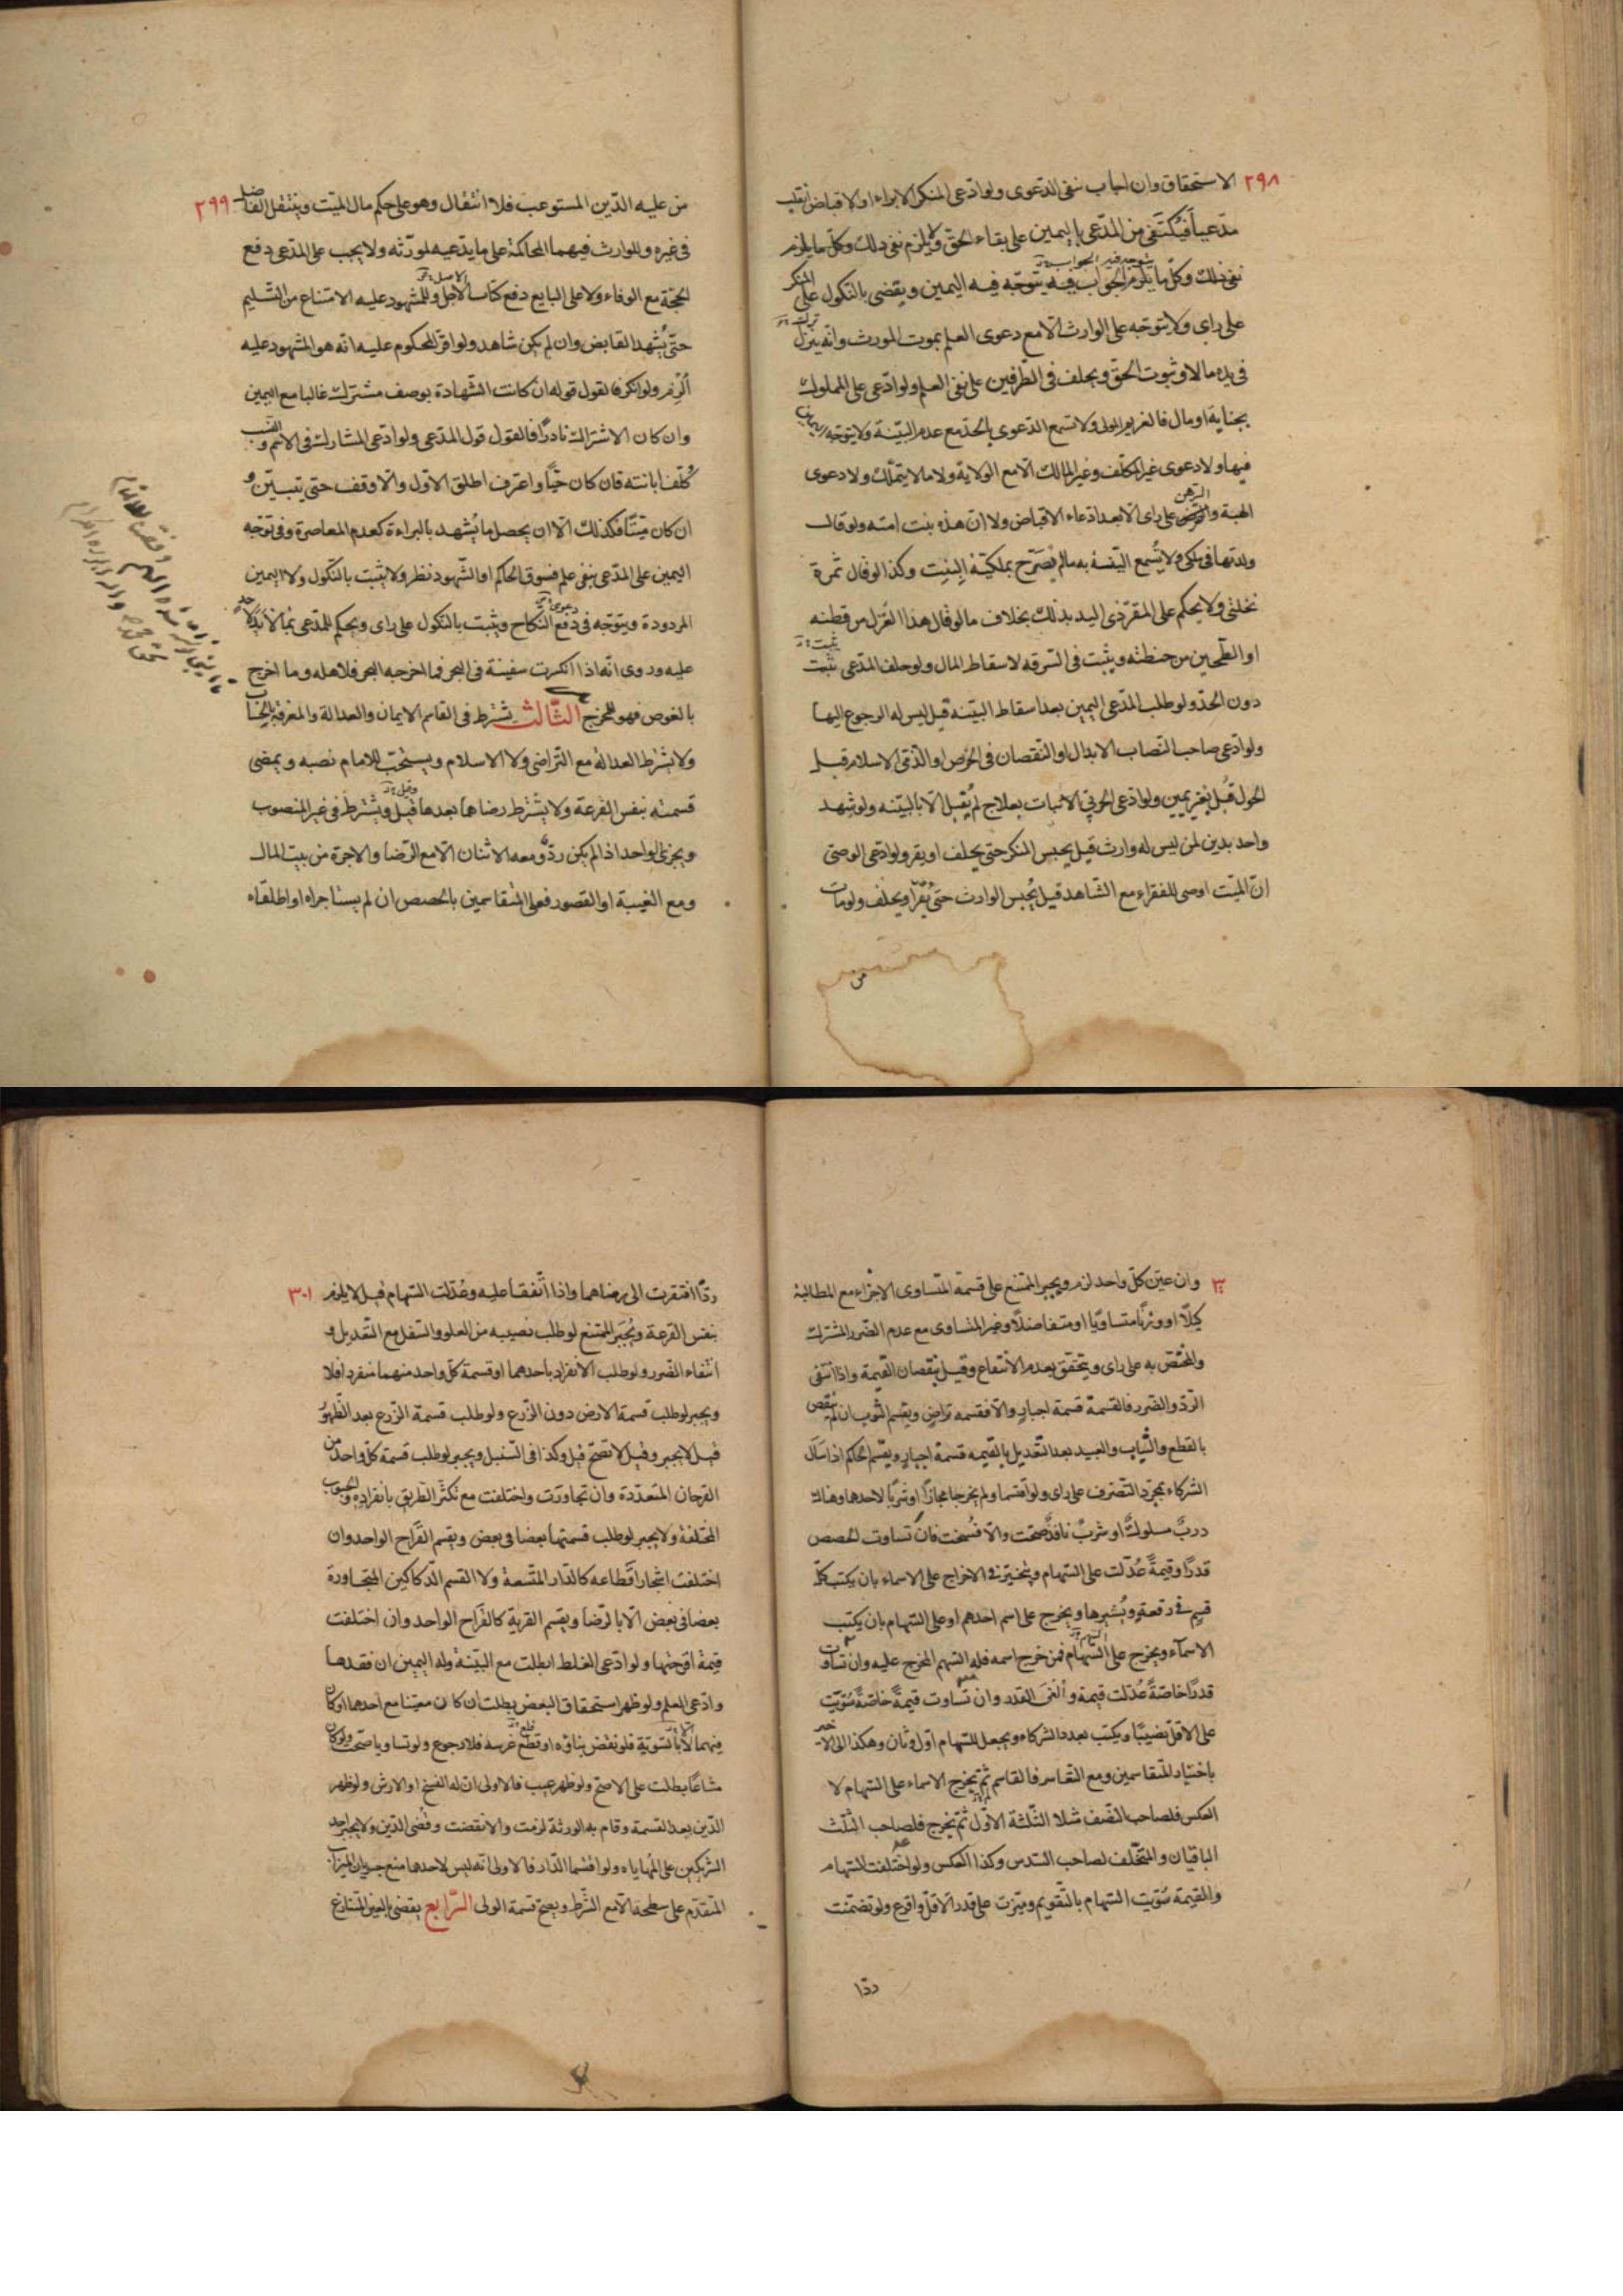 ٢٩٨
الاستحقاق وان اجاب بنفى الدعوى ولو ادّعى المنكر الابراء او الاقباض انقلب
مدّعياً فيُكتَفى من المدّعى باليمين على بقاء الحقّ ولا يلزم نفى ذلك وكلّ ما يلزم
نفى ذلك وكلّ ما يلزم الجواب فيه يتوجّه فيه اليمين ويقضى بالنكول على المنكر
على راى ولا يتوجه على الوارث الّا مع دعوى العلم بموت المورث وانّه ترك
فى يده مالا وثبوت الحقّ ويحلف فى الطرفين على نفى العلم ولو ادّعى على المملوك
بجناية او مال فالغريم المولى ولا تسمع الدعوى بالحدّ مع عدم البيّنة ولا يتوجّه اليمين
فيها ولا دعوى غير المكلّف وغير المالك الّا مع الولاية ولا ما لا يتملّك ولا دعوى
الهبة والرّهن على راى الّا بعد ادّعاء الاقباض ولا انّ هذه بنت امته ولو قال
ولدتها فى ملكى ولا تُسمع البيّنة به ما لم يُصرّح بملكيّة البنت وكذا لو قال ثمرة
نخلتى ولا يحكم على المقرّ ذى اليد بذلك بخلاف ما لو قال هذا الغزل من قطنه
او الطّحين من حنطته ويثبت فى السرقه لاسقاط المال ولو حلف المدّعى ثبت
دون الحدّ ولو طلب المدّعى اليمين بعد اسقاط البيّنة قيل ليس له الرجوع اليها
ولو ادّعى صاحب النصاب الابدال او النّقصان فى الخرص او الذّمّى الاسلام قبل
الحول قُبل بغير يمين ولو ادّعى الحربىّ الانبات بعلاج لم يُقبل الّا بالبيّنه ولو شهد
واحد بدين لمن ليس له وارث قيل يحبس المنكر حتى يحلف او يقر ولو ادّعى الوصىّ
انّ الميّت اوصى للفقراء مع الشّاهد قيل يُحبس الوارث حتى يقرّ او يحلف ولو مات
من
٢٩٩
من عليه الدّين المستوعب فلا انتقال وهو على حكم مال الميّت وينتقل الفاضل
فى غيره وللوارث فيهما المحاكمة على ما يدّعيه لمورّثه ولا يجب على المدّعى دفع
الحجّة مع الوفاء ولا على البايع دفع كتاب الاصل وللمشهود عليه الامتناع من التّسليم
حتّى يُشهد القابض وان لم يكن شاهد ولو اقرّ المحكوم عليه انّه هو المشهود عليه
اُلزم ولو انكر فالقول قوله ان كانت الشّهادة بوصف مشترك غالبا مع اليمين
وان كان الاشتراك نادراً فالقول قول المدّعى ولو ادّعى المشارك فى الاسم والنسب
كُلّف ابانته فان كان حيّاً واعترف اطلق الاوّل والّا وقف حتى يتبيّن و
ان كان ميّتاً فكذلك الّا ان يحصل ما يُشهد بالبراءة كعدم المعاصرة وفى توجّه
اليمين على المدّعى بنفى علم فسوق الحاكم او الشّهود نظر ولا يثبت بالنّكول ولا اليمين
المردودة ويتوجّه فى دعوى النكاح ويثبت بالنكول على راى ويحكم للمدّعى بما لا يد لاحد
عليه وروى انّه اذا انكسرت سفينة فى البحر فما اخرجه البحر فلاهله وما اخرج
بالغوص فهو للمخرج الثّالث يشترط فى القاسم الايمان والعدالة والمعرفة بالحساب
ولا يشترط العدالة مع التّراضى ولا الاسلام ويستحبّ للامام نصبه ويمضى
قسمته بنفس القرعة ولا يُشترط رضاهما بعدها قبل ويشترط فى غير المنصوب
ويجزى الواحد اذا لم يكن ردّ ومعه الاثنان الّا مع الرّضا والاجرة من بيت المال
ومع الغيبة او القصور فعلى المتقاسمين بالحصص ان لم يستاجراه او اطلقاه
٣٠٠
وان عيّن كلّ واحد لزم ويجبر الممتنع على قسمة المتساوى الاجزاء مع المطالبة
كيلًا او وزنًا متساويًا او متفاضلًا وغير المتساوى مع عدم الضّرر المشترك
والمختصّ به على راى ويتحقّق بعدم الانتفاع وقيل بنقصان القيمة واذا انتفى
الرّدّ والضّرر فالقسمة قسمة اجبارٍ والّا فقسمة تراضٍ ويقسم الثوب ان لم ينقص
بالقطع والثّياب والعبيد بعد التّعديل بالقيمه قسمة اجبارٍ ويقسّم الحاكم اذا سال
الشّركاء بمجرّد التّصرف على راى ولو اقتسما ولم يخرجا مجازاً او شربًا لاحدهما وهناك
دربٌ مسلوكٌ او شربٌ نافذٌ صحّت والّا فُسخت فان تساوت الحصص
قدرًا وقيمةً عُدّلت على السّهام ويتخيّر فى الاخراج على الاسماء بان يكتب كلّ
قسمٍ فى رقعةٍ ويُشيرها ويخرج على اسم احدهم او على السّهام بان يكتب
الاسماء ويخرج على السّهام فمن خرج اسمه فله السّهم المخرج عليه وان تساوت
قدرًا خاصّةً عُدّلت قيمةً واُلغى القدر وان تساوت قيمةً خاصّةً سُوّيت
على الاقلّ نصيبًا ويكتب بعدد الشركاء ويجعل للسّهام اوّل وثان وهكذا الى الاخير
باختيار المتقاسمين ومع التّعاسر فالقاسم ثمّ يخرج الاسماء على السّهام لا
العكس فلصاحب النّصف مثلا الثّلثة الاوّل ثمّ يخرج فلصاحب الثّلث
الباقيان والمتخلّف لصاحب السّدس وكذا العكس ولو اختلفت السّهام
والقيمة سُوّيت السّهام بالتّقويم وميّزت على قدر الاقلّ واقرع ولو تضمّنت
ردّا
٣٠١
ردّاً افتقرت الى رضاهما واذا اتّفقا عليه وعُدّلت السّهام قيل لا يلزم
بنفس القرعة ويُجبر الممتنع لو طلب نصيبه من العلو والسّفل مع التّعديل و
انتفاء الضّرر ولو طلب الانفراد باحدهما او قسمة كلّ واحد منهما منفردا فلا
ويجبر لو طلب قسمة الارض دون الزّرع ولو طلب قسمة الزّرع بعد الظّهور
قيل لا يجبر وقيل لا تصحّ قبل وكذا فى السّنبل ويجبر لو طلب قسمة كلّ واحد من
القرحان المتعدّدة وان تجاورت واختلفت مع تكثّر الطّريق بانفراده والحبوب
المختلفة ولا يجبر لو طلب قسمتها بعضا فى بعض ويقسم القَراح الواحد وان
اختلفت اشجار اقطاعه كالدّار المتّسعة ولا القسم الدّكاكين المتجاورة
بعضا فى بعض الّا بالرّضا ويقسم القرية كالقَراح الواحد وان اختلفت
قيمة اقرحتها ولو ادّعى الغلط ابطلت مع البيّنة وله اليمين ان فقدها
وادّعى العلم ولو ظهر استحقاق البعض بطلت ان كان معيّنا مع احدهما او كان
فيهما الّا بالسّويّة فلو نقض بناؤه او قطع غرسه فلا رجوع ولو تساويا صحّت ولو كان
مشاعًا بطلت على الاصحّ ولو ظهر عيب فالاولى انّ له الفسخ او الارش ولو ظهر
الدّين بعد القسمة وقام به الورثة لزمت والا نقضت وقُضى الدّين ولا يجبر احد
الشّريكين على المهاياه ولو اقتسما الدّار فالاولى انّه ليس لاحدهما منع جريان الميزاب
المتقدّم على سطحه الّا مع الشّرط ويصحّ قسمة الولى الرّابع يقضى بالعين المتنازع